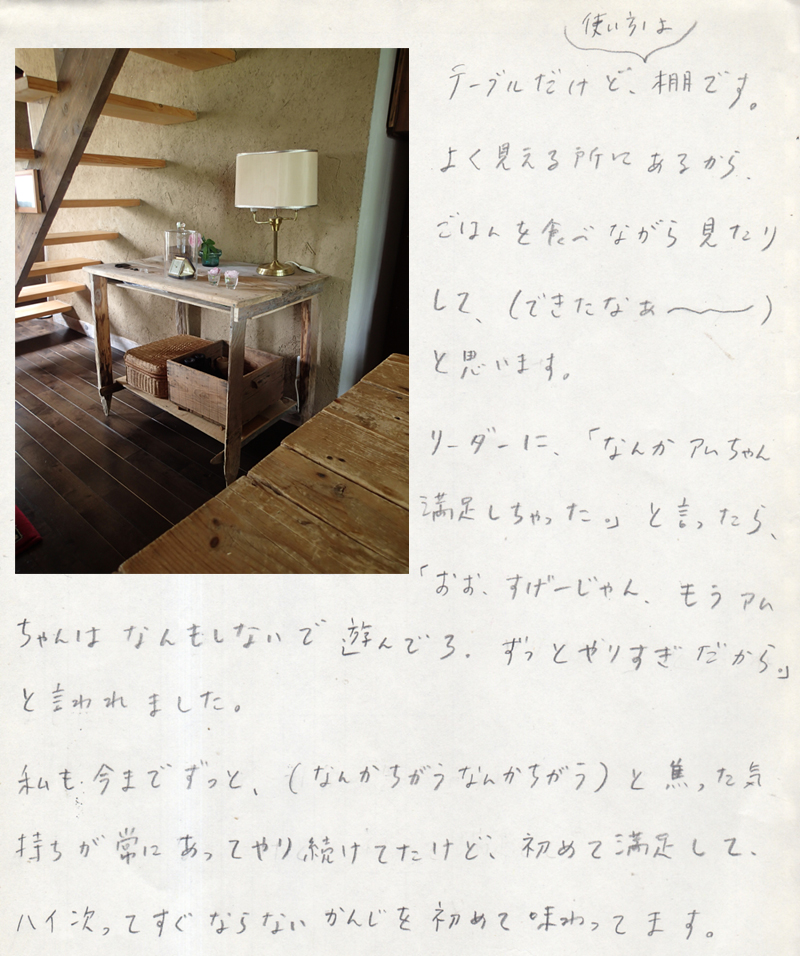 使い方は
テーブルだけど、棚です。
よく見える所にあるから、
ごはんを食べながら見たり
して、(できたなぁ〜〜〜)
と思います。
リーダーに、「なんかアムちゃん
満足しちゃった。」と言ったら、
「おお、すげーじゃん、もうアム
ちゃんはなんもしないで遊んでろ。ずっとやりすぎだから。」
と言われました。
私も今までずっと、(なんかちがうなんかちがう)と焦った気
持ちが常にあってやり続けてたけど、初めて満足して、
ハイ次ってすぐならないかんじを初めて味わってます。